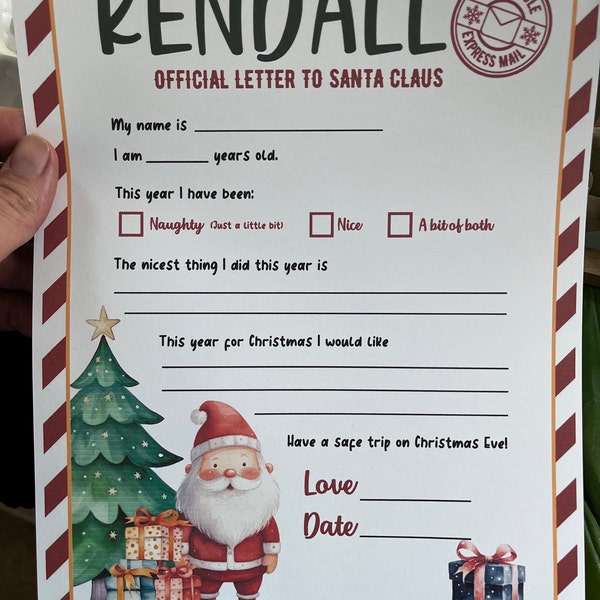 KENDALL
OFFICIAL LETTER TO SANTA CLAUS
EXPRESS MAIL
My name is
I am ________ years old.
This year I have been:
Naughty (Just a little bit) Nice A bit of both
The nicest thing I did this year is
This year for Christmas I would like
Have a safe trip on Christmas Eve!
Love
Date